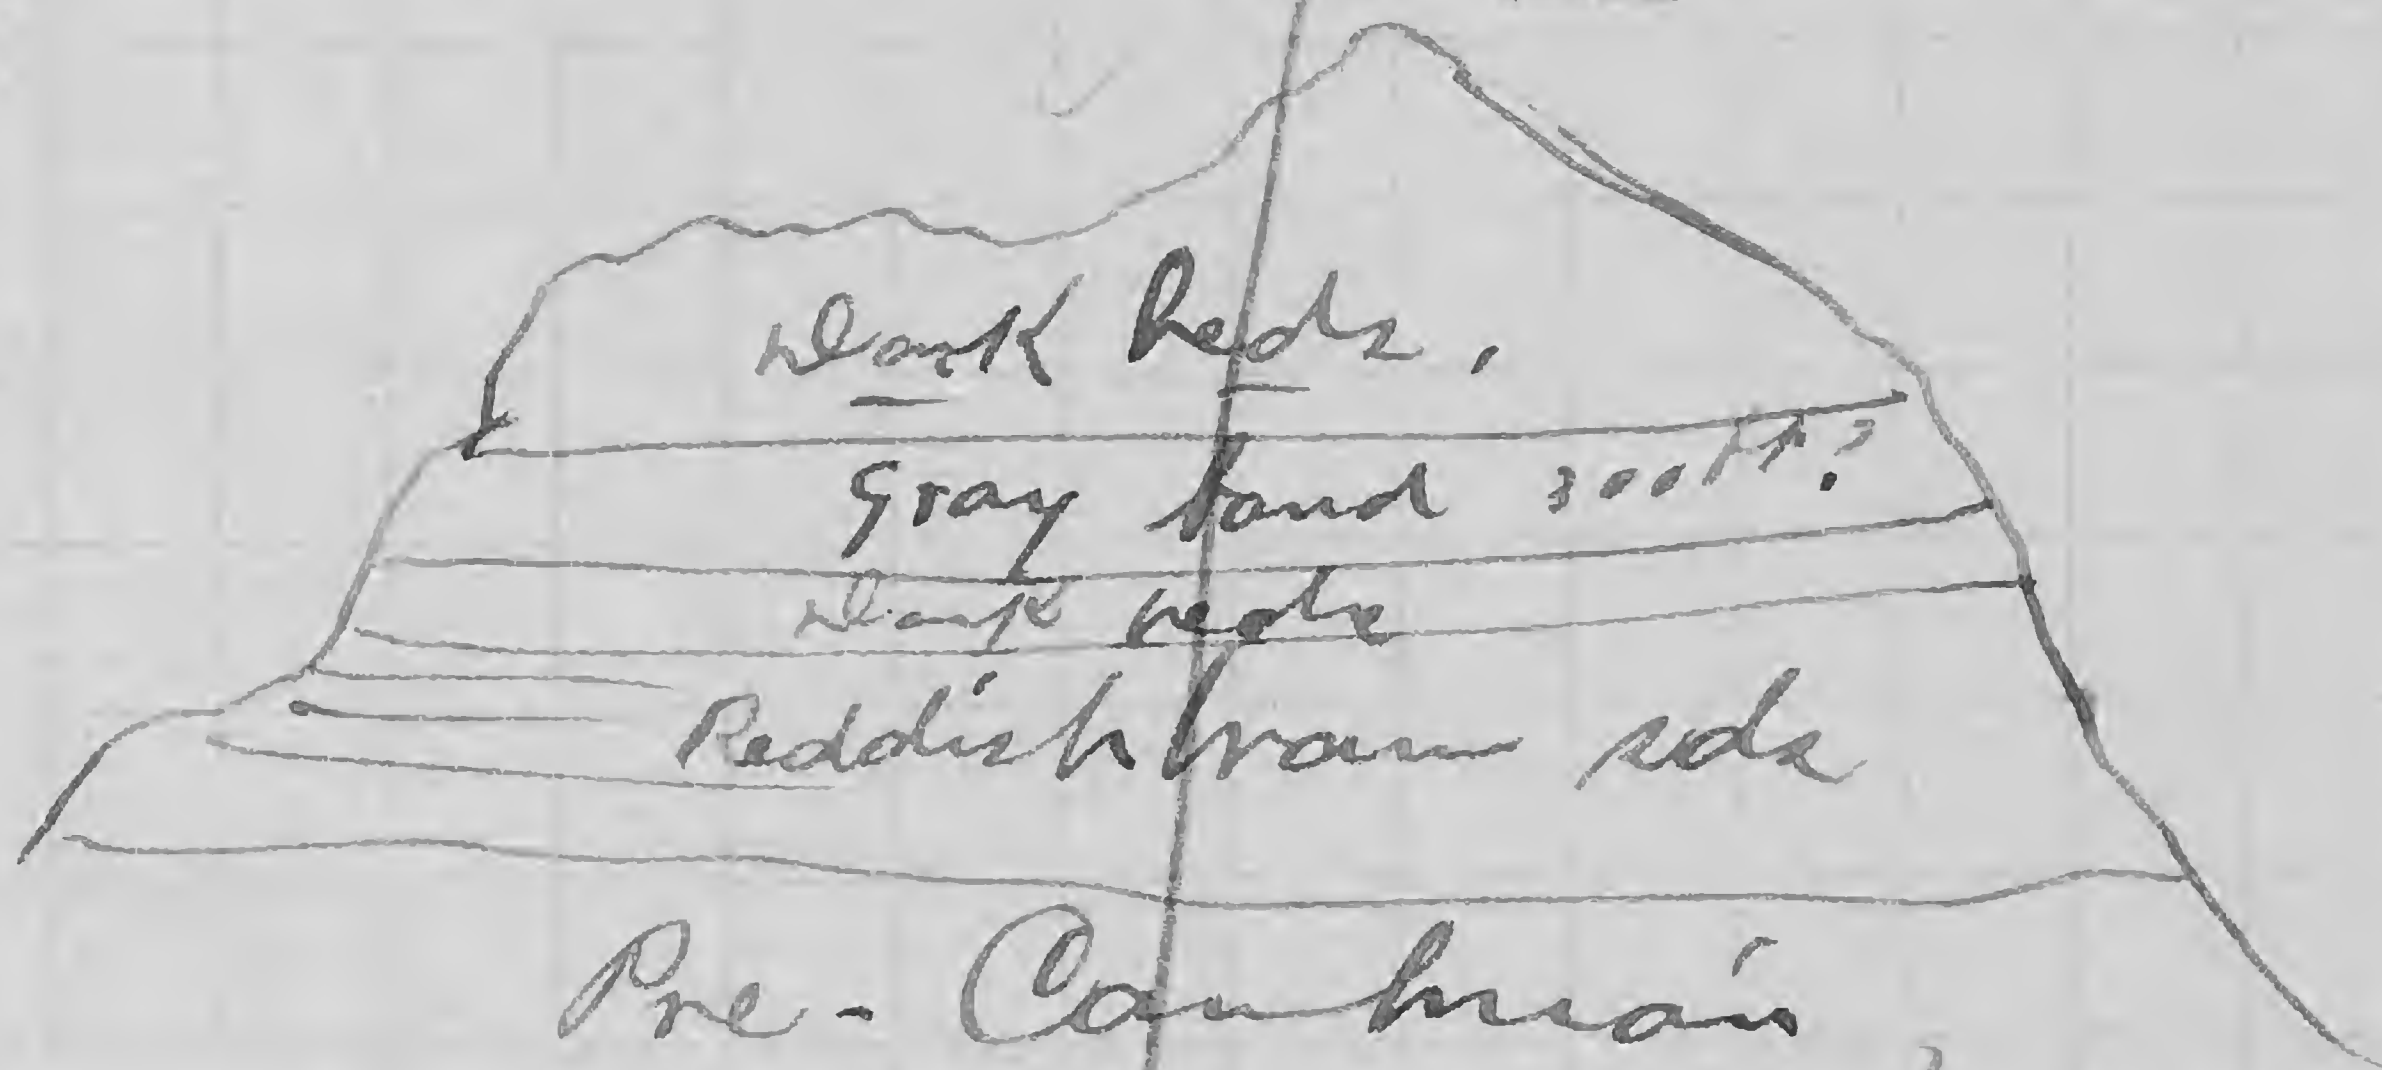 Dark beds.
Gray band 300 ft.?
Dark beds
Reddish brown sds
Pre-Cambrian